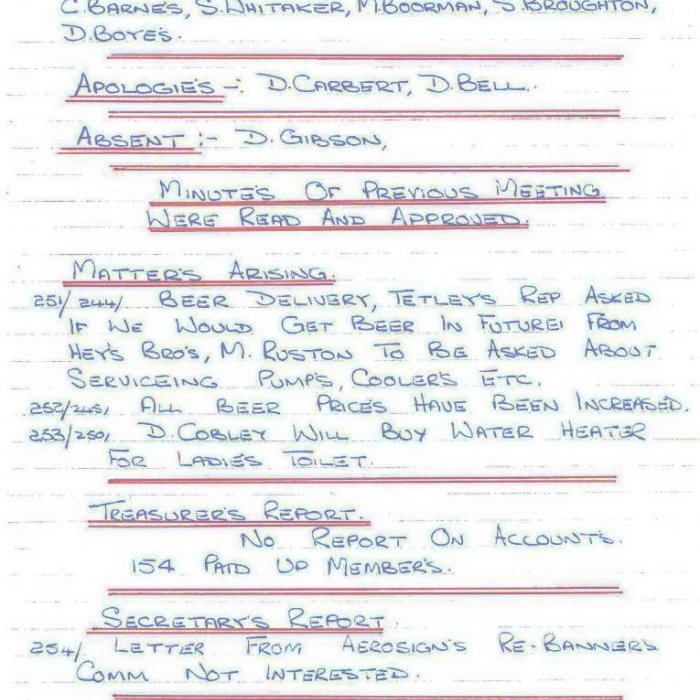 C. BARNE'S, S. WHITAKER, M. BOORMAN, S. BROUGHTON,
D. BOYE'S.
APOLOGIE'S -: D. CARBERT, D. BELL.
ABSENT :- D. GIBSON,
MINUTE'S OF PREVIOUS MEETING
WERE READ AND APPROVED.
MATTER'S ARISING.
251/244/ BEER DELIVERY, TETLEY'S REP ASKED
IF WE WOULD GET BEER IN FUTURE, FROM
HEY'S BRO'S, M. RUSTON TO BE ASKED ABOUT
SERVICEING PUMP'S, COOLER'S ETC.
252/245, ALL BEER PRICE'S HAVE BEEN INCREASED.
253/250, D. COBLEY WILL BUY WATER HEATER
FOR LADIE'S TOILET.
TREASURER'S REPORT.
NO REPORT ON ACCOUNT'S.
154 PAID UP MEMBER'S.
SECRETARY'S REPORT
254/ LETTER FROM AEROSIGN'S RE-BANNER'S
COMM NOT INTERESTED.